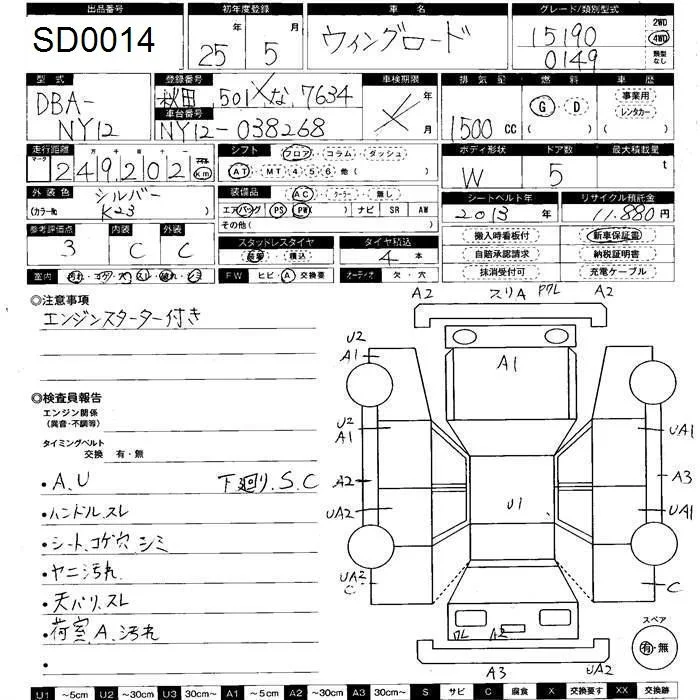 出品番号 初年度登録 車名 グレード/類別型式
SD0014 25年 5月 ウィングロード 15190 0149 2WD 4WD 類型なし
型式 登録番号 車検期限 排気量 燃料 車歴
DBA-NY12 秋田 501 な 7634 年 月 1500cc G・D ( ) 事業用 レンタカー ( )
車台番号
NY12-038268
走行距離 シフト フロア・コラム・ダッシュ ボディ形状 ドア数 最大積載量
マーク 十万千百十一
249202 km AT・MT 4 5 6 他( ) W 5 t
外装色 装備品 AC・クーラー・無し シートベルト年 リサイクル預託金
シルバー
(カラーNo K23 ) エアバッグ PS PW( ) ナビ SR AW 2013年 11,880円
その他( )
参考評価点 内装 外装 スタッドレスタイヤ タイヤ積込 搬入時看板付 新車保証書
3 C C 装着・積込 4本 自賠承認請求 納税証明書
室内 汚れ・コゲ・穴・スレ・破れ・シミ FW ヒビ・A・交換要 オーディオ 欠・穴 抹消受付可 充電ケーブル
◎注意事項
エンジンスターター付き
◎検査員報告
エンジン関係
(異音・不調等)
タイミングベルト
交換 有・無
・A、U 下廻り、S、C
・ハンドル、スレ
・シート、コゲ穴、シミ
・ヤニ汚れ
・天バリ、スレ
・荷室、A、汚れ
・
A2 スリA ワレ A2
U2
A1
A1
U2
A1
UA1
A2
A3
UA2
U1
UA1
UA2
C
C
ワレ A2
A3 UA2
スペア
有・無
U1 ~5cm U2 ~30cm U3 30cm~ A1 ~5cm A2 ~30cm A3 30cm~ S サビ C 腐食 X 交換要す XX 交換跡